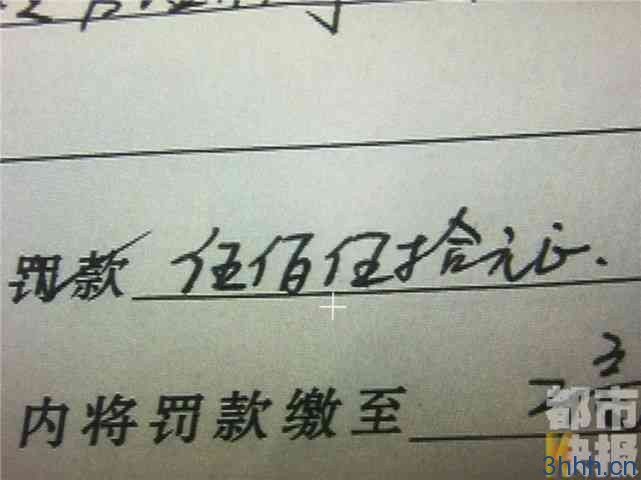 罚款 伍佰伍拾元正.
3
内将罚款缴至
都市
快报
3hhh.cn